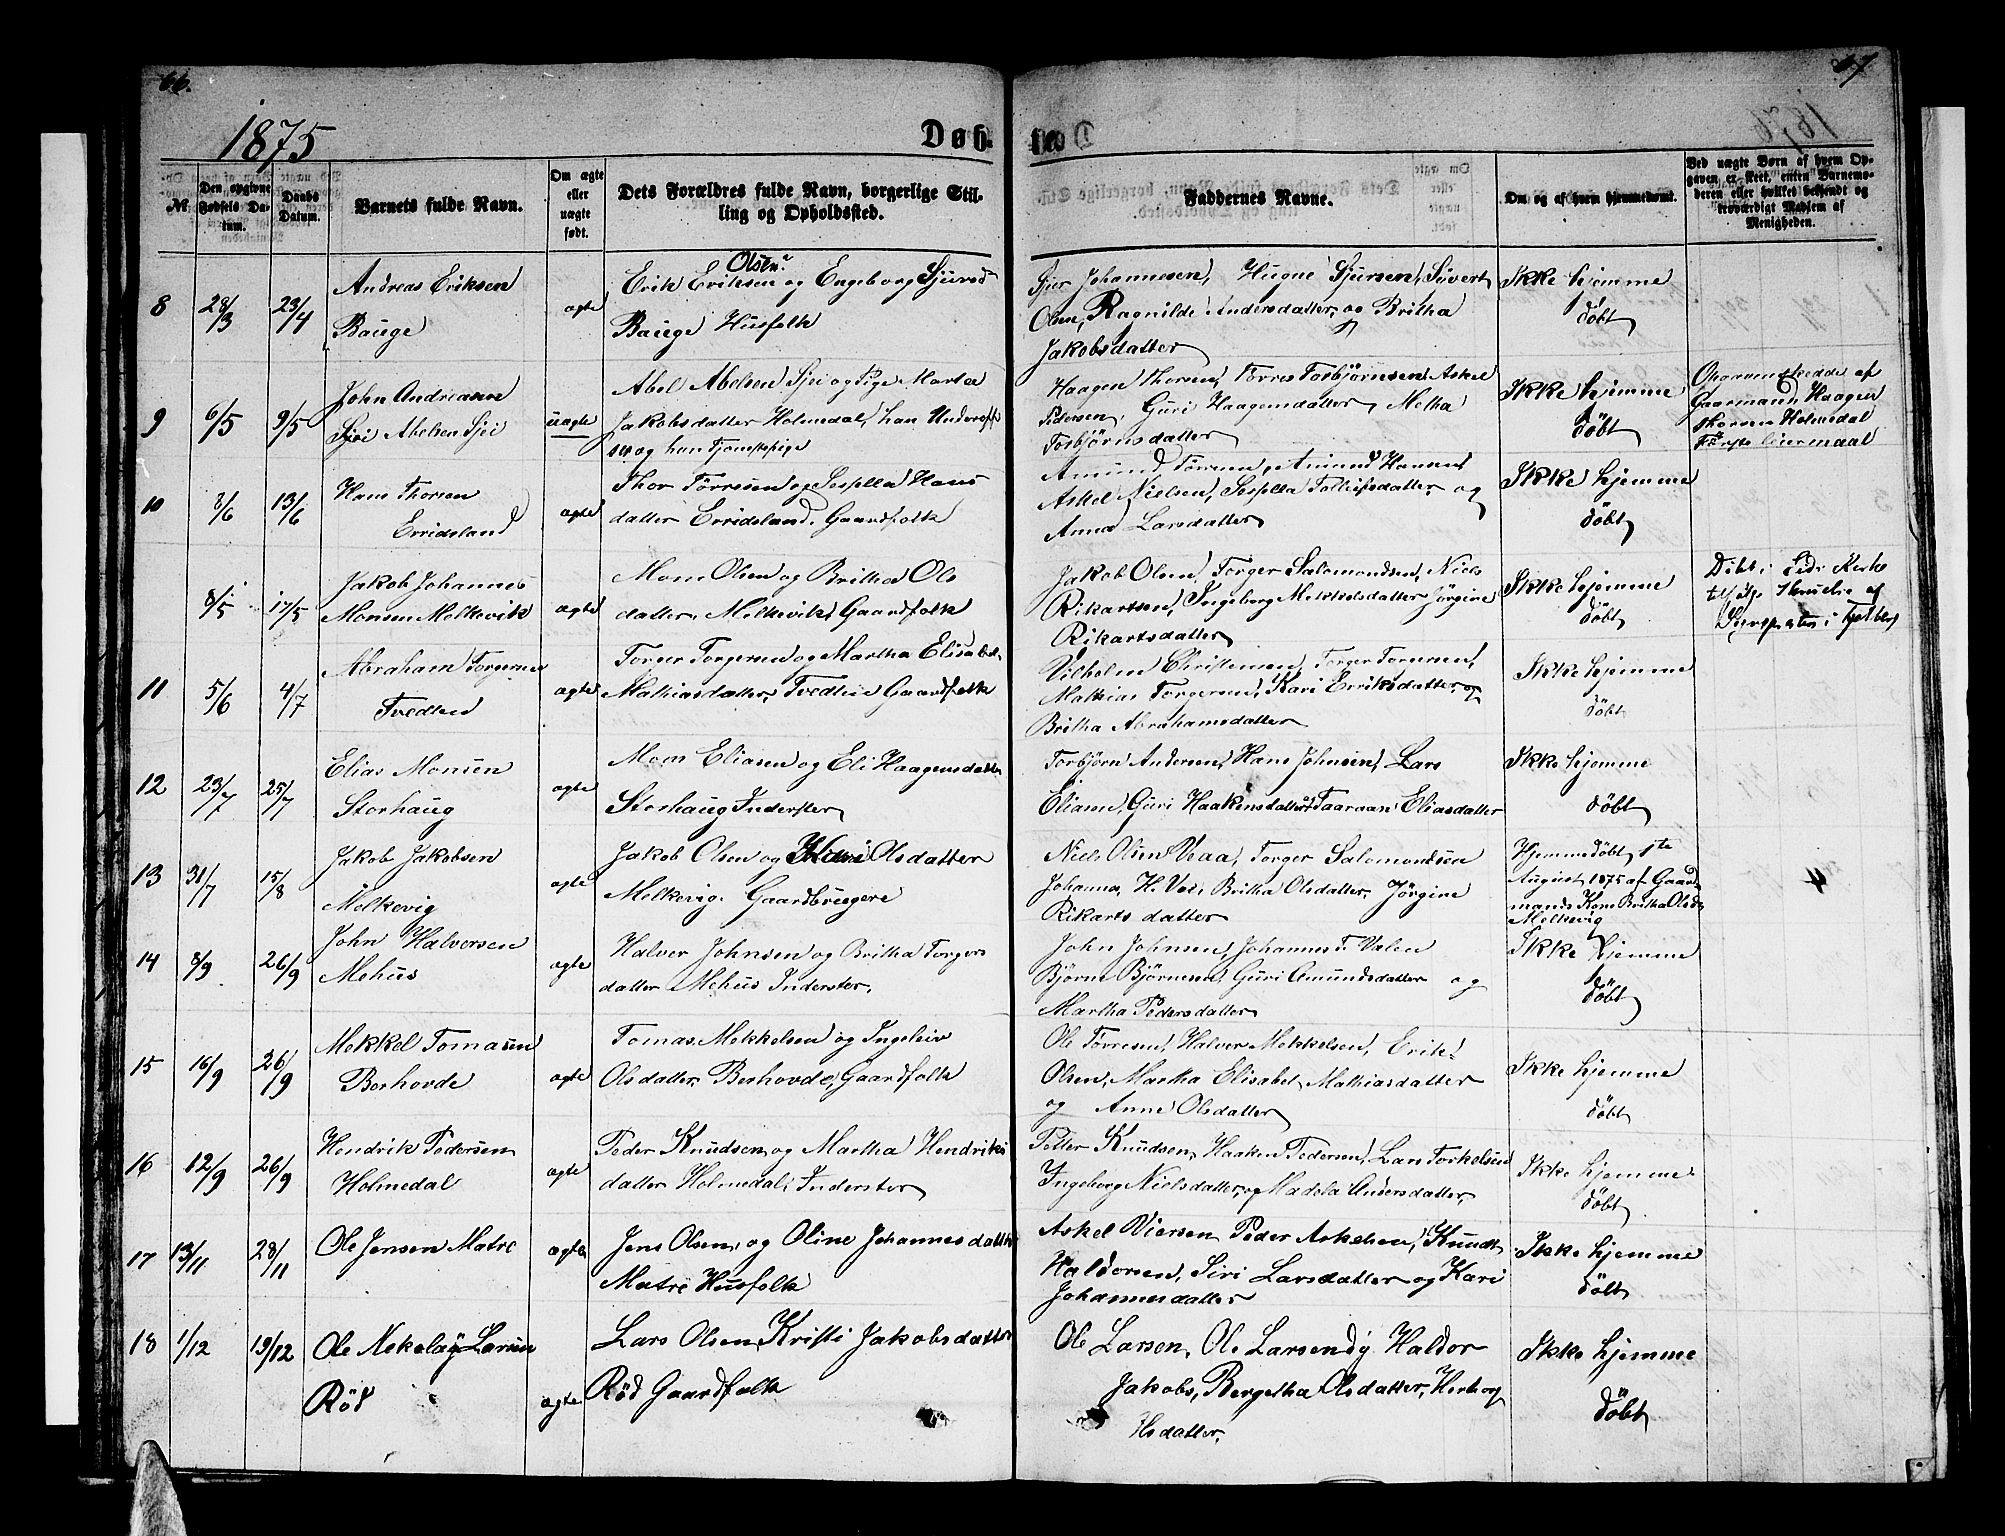 66.
67.
1875
Døb-
te.
№
Den opgivne Fødsels Datum.
Daabs Datum.
Barnets fulde Navn.
Om ægte eller uægte født.
Dets Forældres fulde Navn, borgerlige Stilling og Opholdssted.
Faddernes Navne.
Om og af hvem hjemmedømt.
Ved uægte Børn af hvem Opgaven er skeet, enten Barnemoderen eller hvilket bekjendt og troværdigt Medlem af Menigheden.
8 28/3 23/4
Andreas Eriksen
Bauge
ægte
Olsen
Erik Eriksen og Engeborg Sjursd
Bauge Husfolk
Sjur Johannesen, Hugne Sjursen, Sivert
Olsen, Ragnilde Andersdatter, og Britha
Jakobsdatter
Ikke hjemme
døbt
9 6/5 9/5
John Andreasen
Sjøi Abelsen Sjøi
uægte
Abel Abelsen Sjøi og Pige Marta
Jakobsdatter Holmedal, han Underoff
og hun Tjenestepige
Haagen Thorsen, Tørres Torbjørnsen, Askel
Pedersen, Guri Haagensdatter, Metha
Torbjørnsdatter
Ikke hjemme
døbt
af
Gaarmand Haagen
Thorsen Holmedal
10 8/6 13/6
Hans Thorsen
Erridsland
ægte
Thor Tørresen og Sesella Hans
datter Erridsland, Gaardfolk
Amund Tørresen, Amund Hansen
Askel Nielsen, Sesella Tollefsdatter og
Anna Larsdatter
Ikke hjemme
døbt
8/5 17/5
Jakob Johannes
Monsen Melkevik
ægte
Mons Olsen og Britha Ols
datter, Melkevik Gaardfolk
Jakob Olsen, Torger Salomondsen, Niels
Rikartsen, Ingeborg Mekkelsdatter Jørgine
Rikartsdatter
Ikke hjemme
døbt
Døbt i Kirke
af
i
11 5/6 4/7
Abraham Torgersen
Tvedten
ægte
Torger Torgersen og Martha Elisabet
Mathiasdatter, Tvedten Gaardfolk
Vilhelm Christensen, Torger Torgersen,
Mathias Torgersen, Kari Erriksdatter, og
Britha Abrahamsdatter
Ikke hjemme
døbt
12 23/7 25/7
Elias Monsen
Storhaug
ægte
Mons Eliasen og Eli Haagensdatter
Storhaug Inderster
Torbjørn Andersen, Hans Johnsen, Lars
Eliasen, Guri Haakensdatter, Taaraan Eliasdatter
Ikke hjemme
døbt
13 31/7 15/8
Jakob Jakobsen
Melkevig
ægte
Jakob Olsen og Olsdatter
Melkevig. Gaardbrugere
Niels Olsen Veaa, Torger Salomondsen
Johanna, H. Vee, Britha Olsdatter, Jørgine
Rikarts datter
Hjemmedøbt 1te
August 1875 af Gaard
mands Kone Britha Olsd.
Melkevig
4
14 8/9 26/9
John Halversen
Mehus
ægte
Halver Johnsen og Britha Torgers
datter Mehus Inderster,
John Johnsen, Johannes T. Valen
Bjørne Bjørnesen, Guri Amundsdatter og
Martha Pedersdatter
Ikke hjemme
døbt
15 16/9 26/9
Mekkel Tomasen
Berhovde
ægte
Tomas Mekkelsen og Ingeleiv
Olsdatter, Berhovde, Gaardfolk
Ole Tørresen, Halver Mekkelsen, Erik
Olsen, Martha Elisabet, Mathiasdatter
og Anne Olsdatter
Ikke hjemme
døbt
16 12/9 26/9
Hendrik Pedersen
Holmedal
ægte
Peder Knudsen og Martha Hendriks
datter Holmedal, Inderster
Petter Knudsen, Haaken Pedersen, Lars Torkelsen
Ingeborg Nielsdatter, og Madela Andersdatter,
Ikke hjemme
døbt
17 13/11 28/11
Ole Jensen Matre
ægte
Jens Olsen, og Oline Johannesdatter
Matre Husfolk
Askel Viersen Peder Askelsen, Knudt
Haldorsen, Siri Larsdatter og Kari
Johannesdatter
Ikke hjemme
døbt
18 1/12 19/12
Ole Nekolay Larsen
Rød
ægte
Lars Olsen, Kristi Jakobsdatter
Rød Gaardfolk
Ole Larsen, Ole Larsen dy Haldor
Jakobs, Bergetha Olsdatter, Herborg
Hsdatter,
Ikke hjemme
døbt